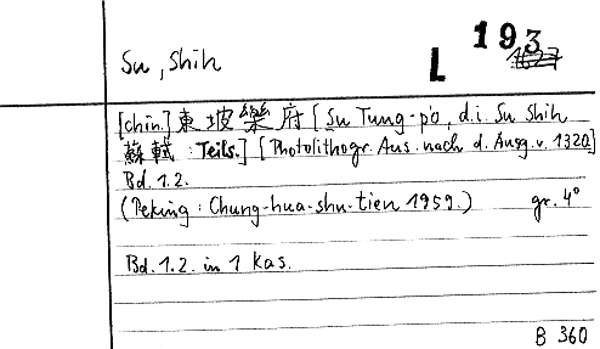 Su, Shih
L 193
[chin.] 東坡樂府 [Su Tung-p'o, d.i. Su Shih
蘇軾: Teils.] [Photolithogr. Ausg. nach d. Ausg. v. 1320]
Bd. 1.2.
(Peking: Chung-hua-shu-tien 1959.) gr. 4°
Bd. 1.2. in 1 Kas.
B 360